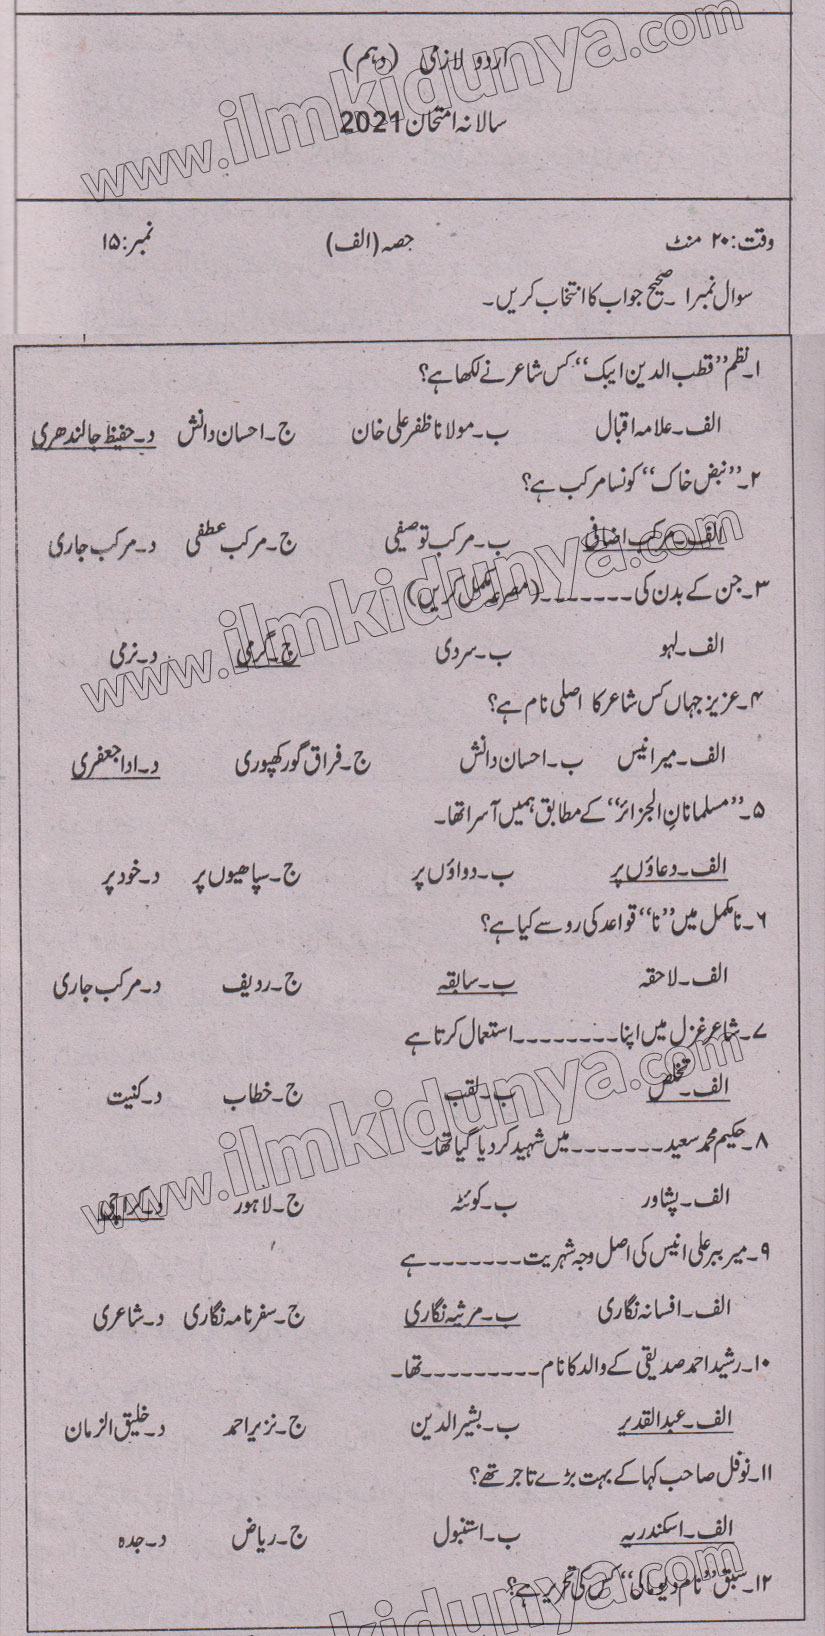 اردو لازمی (دہم)
سالانہ امتحان 2021
وقت: ۲۰ منٹ حصہ (الف) نمبر: ۱۵
سوال نمبر ۱ ۔ صحیح جواب کا انتخاب کریں۔
۱۔ نظم ”قطب الدین ایبک“ کس شاعر نے لکھا ہے؟
الف۔ علامہ اقبال ب۔ مولانا ظفر علی خان ج۔ احسان دانش د۔ حفیظ جالندھری
۲۔ ”نبض خاک“ کونسا مرکب ہے؟
الف۔ مرکب اضافی ب۔ مرکب توصیفی ج۔ مرکب عطفی د۔ مرکب جاری
۳۔ جن کے بدن کی ------- (مصرعہ مکمل کریں)
الف۔ لہو ب۔ سردی ج۔ گرمی د۔ نرمی
۴۔ عزیز جہاں کس شاعر کا اصلی نام ہے؟
الف۔ میر انیس ب۔ احسان دانش ج۔ فراق گورکھپوری د۔ ادا جعفری
۵۔ ”مسلمانانِ الجزائر“ کے مطابق ہمیں آسرا تھا۔
الف۔ دعاؤں پر ب۔ دواؤں پر ج۔ سپاھیوں پر د۔ خود پر
۶۔ نامکمل میں ”نا“ قواعد کی رو سے کیا ہے؟
الف۔ لاحقہ ب۔ سابقہ ج۔ ردیف د۔ مرکب جاری
۷۔ شاعر غزل میں اپنا -------- استعمال کرتا ہے
الف۔ تخلص ب۔ لقب ج۔ خطاب د۔ کنیت
۸۔ حکیم محمد سعید ------- میں شہید کر دیا گیا تھا۔
الف۔ پشاور ب۔ کوئٹہ ج۔ لاہور د۔ کراچی
۹۔ میر ببر علی انیس کی اصل وجہ شہریت ------- ہے
الف۔ افسانہ نگاری ب۔ مرثیہ نگاری ج۔ سفرنامہ نگاری د۔ شاعری
۱۰۔ رشید احمد صدیقی کے والد کا نام --------- تھا۔
الف۔ عبدالقدیر ب۔ بشیر الدین ج۔ نزیر احمد د۔ خلیق الزمان
۱۱۔ نوفل صاحب کہا کے بہت بڑے تاجر تھے؟
الف۔ اسکندریہ ب۔ استنبول ج۔ ریاض د۔ جدہ
۱۲۔ سبق ”نام دیو مالی“ کس کی تحریر ہے؟
www.ilmkidunya.com
www.ilmkidunya.com
www.ilmkidunya.com
kidunya.com